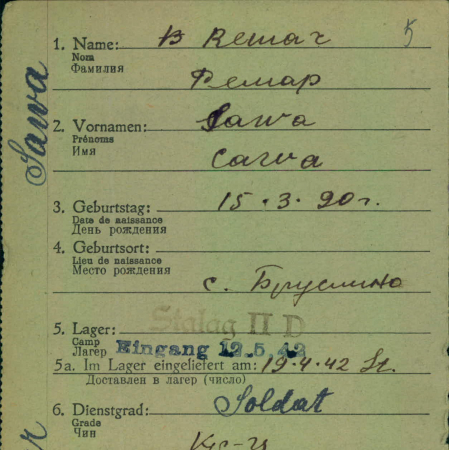 1. Name: B Remar
Nom
Фамилия
Ремар
2. Vornamen: Sawa
Prénoms
Имя
Савва
3. Geburtstag: 15.3.90г.
Date de naissance
День рождения
4. Geburtsort:
Lieu de naissance
Место рождения
с. Бруслино
5. Lager: Stalag II D
Camp
Лагерь Eingang 12.5.42
5a. Im Lager eingeliefert am: 19.4.42 St.
Доставлен в лагерь (число)
6. Dienstgrad: Soldat
Grade
Чин
Sawa